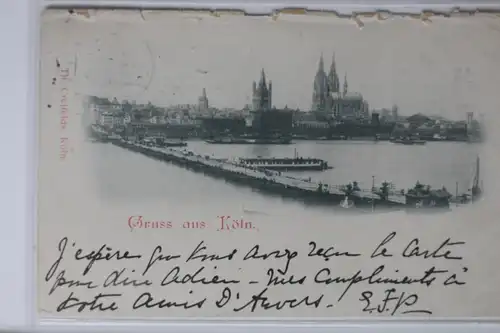 Th. Creifelds, Köln.
Gruss aus Köln.
J'espère que vous avez reçu le carte
pour dire Adieu - mes compliments à
votre Amis D'Anvers. E.F.P.